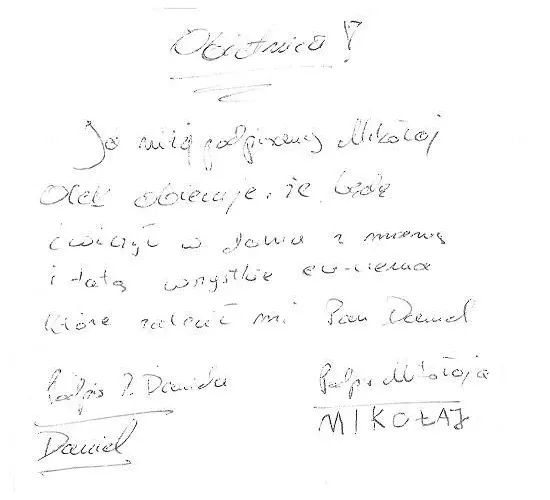 Obietnica!
Ja niżej podpisany Mikołaj
Olek obiecuję, że będę
ćwiczył w domu z mamą
i tatą wszystkie ćwiczenia
które zalecił mi Pan Daniel
Podpis P. Daniela
Podpis Mikołaja
Daniel
MIKOŁAJ